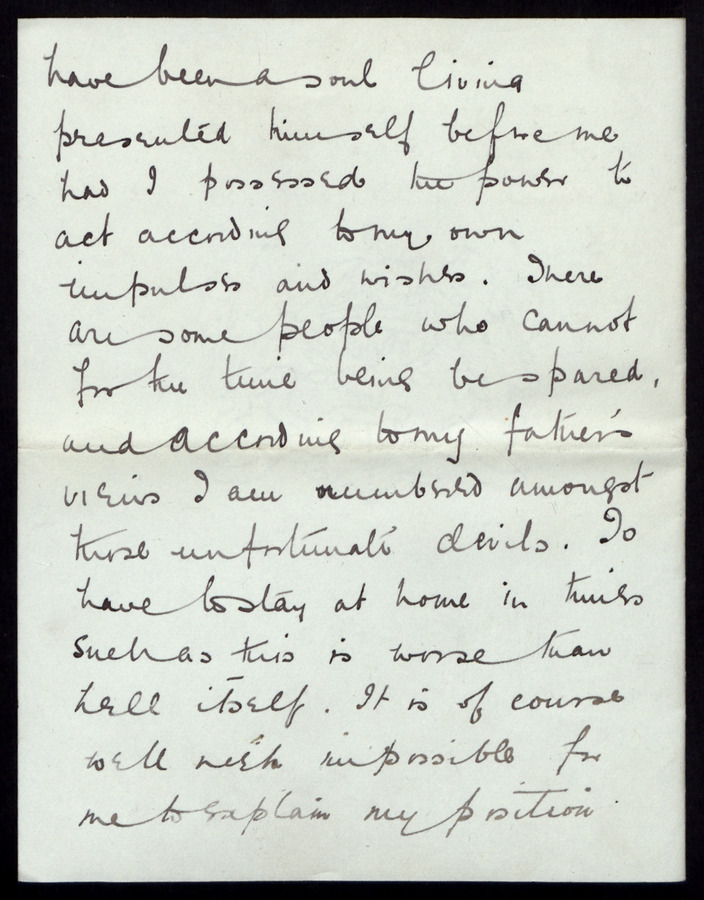 have been a soul living
presented himself before me
had I possessed the power to
act according to my own
impulses and wishes. There
are some people who cannot
for the time being be spared,
and according to my father's
views I am numbered amongst
those unfortunate devils. To
have to stay at home in times
such as this is worse than
hell itself. It is of course
well nigh impossible for
me to explain my position.